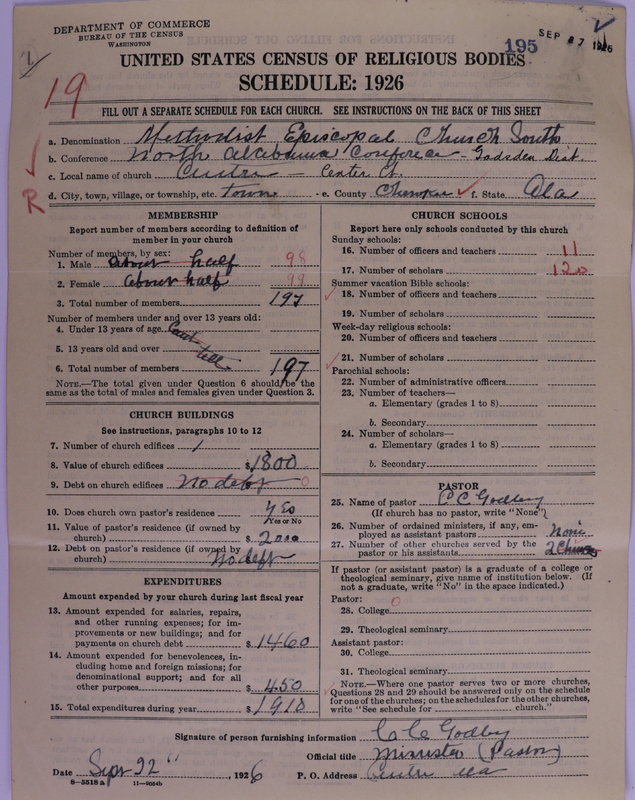 DEPARTMENT OF COMMERCE
BUREAU OF THE CENSUS
WASHINGTON
195
SEP 27 1926
UNITED STATES CENSUS OF RELIGIOUS BODIES
SCHEDULE: 1926
19
FILL OUT A SEPARATE SCHEDULE FOR EACH CHURCH. SEE INSTRUCTIONS ON THE BACK OF THIS SHEET
a. Denomination Methodist Episcopal Church South
b. Conference North Alabama Conference - Gadsden Dist.
c. Local name of church Centre - Center Ct.
R
d. City, town, village, or township, etc. town e. County Cherokee f. State Ala
MEMBERSHIP
Report number of members according to definition of
member in your church
Number of members, by sex:
1. Male about half 98
2. Female about half 99
3. Total number of members 197
Number of members under and over 13 years old:
4. Under 13 years of age Cant
5. 13 years old and over tell
6. Total number of members 197
NOTE.—The total given under Question 6 should be the
same as the total of males and females given under Question 3.
CHURCH BUILDINGS
See instructions, paragraphs 10 to 12
7. Number of church edifices 1
8. Value of church edifices $1800
9. Debt on church edifices No debt 0
10. Does church own pastor's residence? yes
Yes or No
11. Value of pastor's residence (if owned by
church) $ 2000
12. Debt on pastor's residence (if owned by
church) No debt
EXPENDITURES
Amount expended by your church during last fiscal year
13. Amount expended for salaries, repairs,
and other running expenses; for im-
provements or new buildings; and for
payments on church debt $1460
14. Amount expended for benevolences, in-
cluding home and foreign missions; for
denominational support; and for all
other purposes $ 450
15. Total expenditures during year $1910
CHURCH SCHOOLS
Report here only schools conducted by this church
Sunday schools:
16. Number of officers and teachers 11
17. Number of scholars 120
Summer vacation Bible schools:
18. Number of officers and teachers
19. Number of scholars
Week-day religious schools:
20. Number of officers and teachers
21. Number of scholars
Parochial schools:
22. Number of administrative officers
23. Number of teachers—
a. Elementary (grades 1 to 8)
b. Secondary
24. Number of scholars—
a. Elementary (grades 1 to 8)
b. Secondary
PASTOR
25. Name of pastor C C Godbey
(If church has no pastor, write "None")
26. Number of ordained ministers, if any, em-
ployed as assistant pastors None
27. Number of other churches served by the
pastor or his assistants 2
If pastor (or assistant pastor) is a graduate of a college or
theological seminary, give name of institution below. (If
not a graduate, write "No" in the space indicated.)
Pastor: 0
28. College
29. Theological seminary
Assistant pastor:
30. College
31. Theological seminary
NOTE.—Where one pastor serves two or more churches,
Questions 28 and 29 should be answered only on the schedule
for one of the churches; on the schedules for the other churches,
write "See schedule for church."
Signature of person furnishing information C C Godbey
Official title Minister (Pastor)
Date Sept 22", 1926 P. O. Address Centre Ala
8—5518a 11—9284b